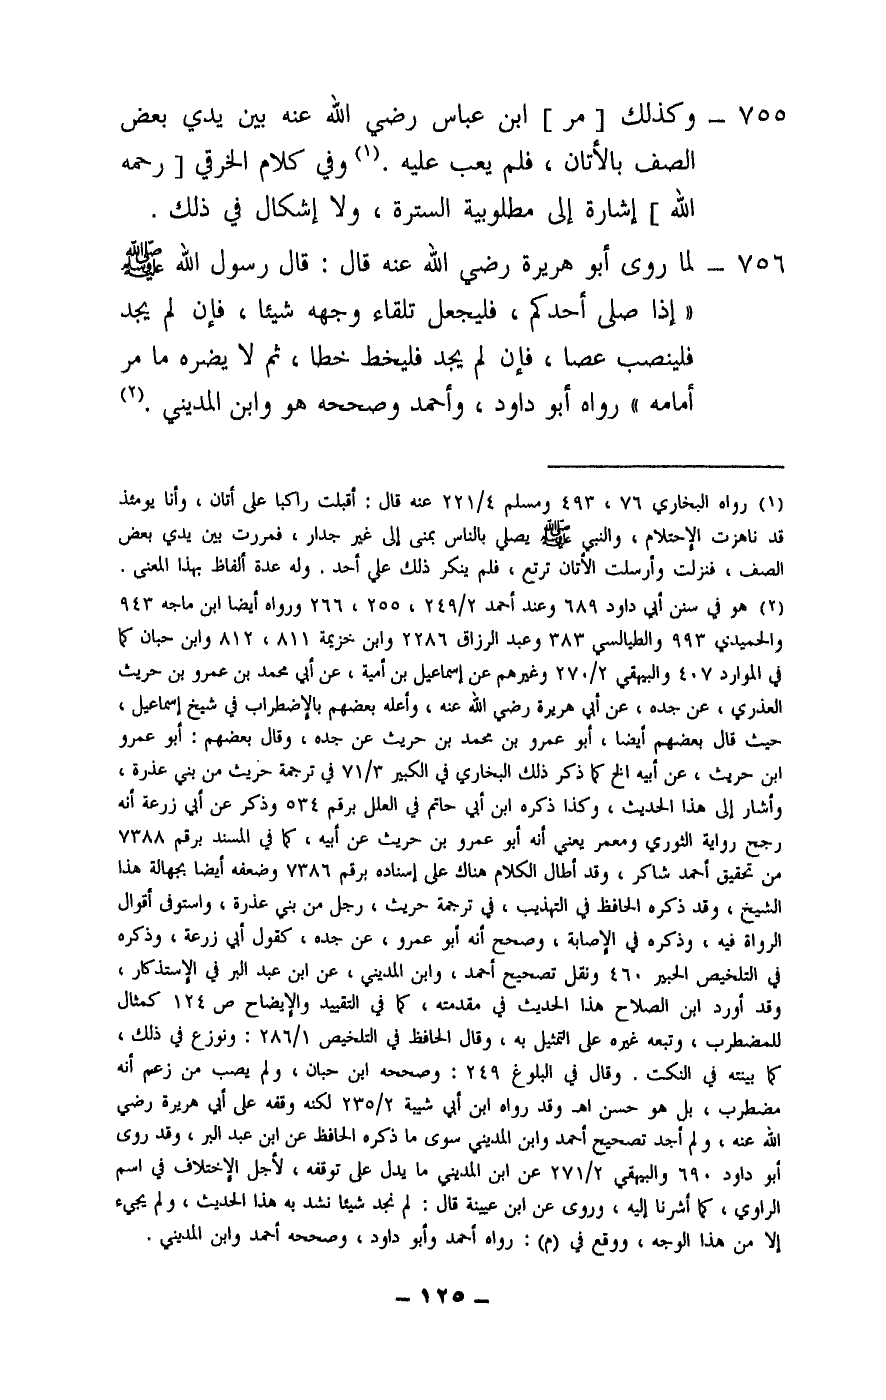 ٧٥٥ ــ وكذلك [ مر ] ابن عباس رضي الله عنه بين يدي بعض
الصف بالأتان ، فلم يعب عليه .(١) وفي كلام الخرقي [ رحمه
الله ] إشارة إلى مطلوبية السترة ، ولا إشكال في ذلك .
٧٥٦ ــ لما روى أبو هريرة رضي الله عنه قال : قال رسول الله ﷺ
« إذا صلى أحدكم ، فليجعل تلقاء وجهه شيئا ، فإن لم يجد
فلينصب عصا ، فإن لم يجد فليخط خطا ، ثم لا يضره ما مر
أمامه » رواه أبو داود ، وأحمد وصححه هو وابن المديني .(٢)
(١) رواه البخاري ٧٦ ، ٤٩٣ ومسلم ٢٢١/٤ عنه قال : أقبلت راكبا على أتان ، وأنا يومئذ
قد ناهزت الإحتلام ، والنبي ﷺ يصلي بالناس بمنى إلى غير جدار ، فمررت بين يدي بعض
الصف ، فنزلت وأرسلت الأتان ترتع ، فلم ينكر ذلك علي أحد . وله عدة ألفاظ بهذا المعنى .
(٢) هو في سنن أبي داود ٦٨٩ وعند أحمد ٢٤٩/٢ ، ٢٥٥ ، ٢٦٦ ورواه أيضا ابن ماجه ٩٤٣
والحميدي ٩٩٣ والطيالسي ٣٨٣ وعبد الرزاق ٢٢٨٦ وابن خزيمة ٨١١ ، ٨١٢ وابن حبان كما
في الموارد ٤٠٧ والبيهقي ٢٧٠/٢ وغيرهم عن إسماعيل بن أمية ، عن أبي محمد بن عمرو بن حريث
العذري ، عن جده ، عن أبي هريرة رضي الله عنه ، وأعله بعضهم بالإضطراب في شيخ إسماعيل ،
حيث قال بعضهم أيضا ، أبو عمرو بن محمد بن حريث عن جده ، وقال بعضهم : أبو عمرو
ابن حريث ، عن أبيه الخ كما ذكر ذلك البخاري في الكبير ٧١/٣ في ترجمة حريث من بني عذرة ،
وأشار إلى هذا الحديث ، وكذا ذكره ابن أبي حاتم في العلل برقم ٥٣٤ وذكر عن أبي زرعة أنه
رجح رواية الثوري ومعمر يعني أنه أبو عمرو بن حريث عن أبيه ، كما في المسند برقم ٧٣٨٨
من تحقيق أحمد شاكر ، وقد أطال الكلام هناك على إسناده برقم ٧٣٨٦ وضعفه أيضا بجهالة هذا
الشيخ ، وقد ذكره الحافظ في التهذيب ، في ترجمة حريث ، رجل من بني عذرة ، واستوفى أقوال
الرواة فيه ، وذكره في الإصابة ، وصحح أنه أبو عمرو ، عن جده ، كقول أبي زرعة ، وذكره
في التلخيص الحبير ٤٦٠ ونقل تصحيح أحمد ، وابن المديني ، عن ابن عبد البر في الإستذكار ،
وقد أورد ابن الصلاح هذا الحديث في مقدمته ، كما في التقييد والإيضاح ص ١٢٤ كمثال
للمضطرب ، وتبعه غيره على التمثيل به ، وقال الحافظ في التلخيص ٢٨٦/١ : ونوزع في ذلك ،
كما بينته في النكت . وقال في البلوغ ٢٤٩ : وصححه ابن حبان ، ولم يصب من زعم أنه
مضطرب ، بل هو حسن اهـ وقد رواه ابن أبي شيبة ٢٣٥/٢ لكنه وقفه على أبي هريرة رضي
الله عنه ، ولم أجد تصحيح أحمد وابن المديني سوى ما ذكره الحافظ عن ابن عبد البر ، وقد روى
أبو داود ٦٩٠ والبيهقي ٢٧١/٢ عن ابن المديني ما يدل على توقفه ، لأجل الإختلاف في اسم
الراوي ، كما أشرنا إليه ، وروى عن ابن عيينة قال : لم نجد شيئا نشد به هذا الحديث ، ولم يجيء
إلا من هذا الوجه ، ووقع في (م) : رواه أحمد وأبو داود ، وصححه أحمد وابن المديني .
ــ ١٢٥ ــ